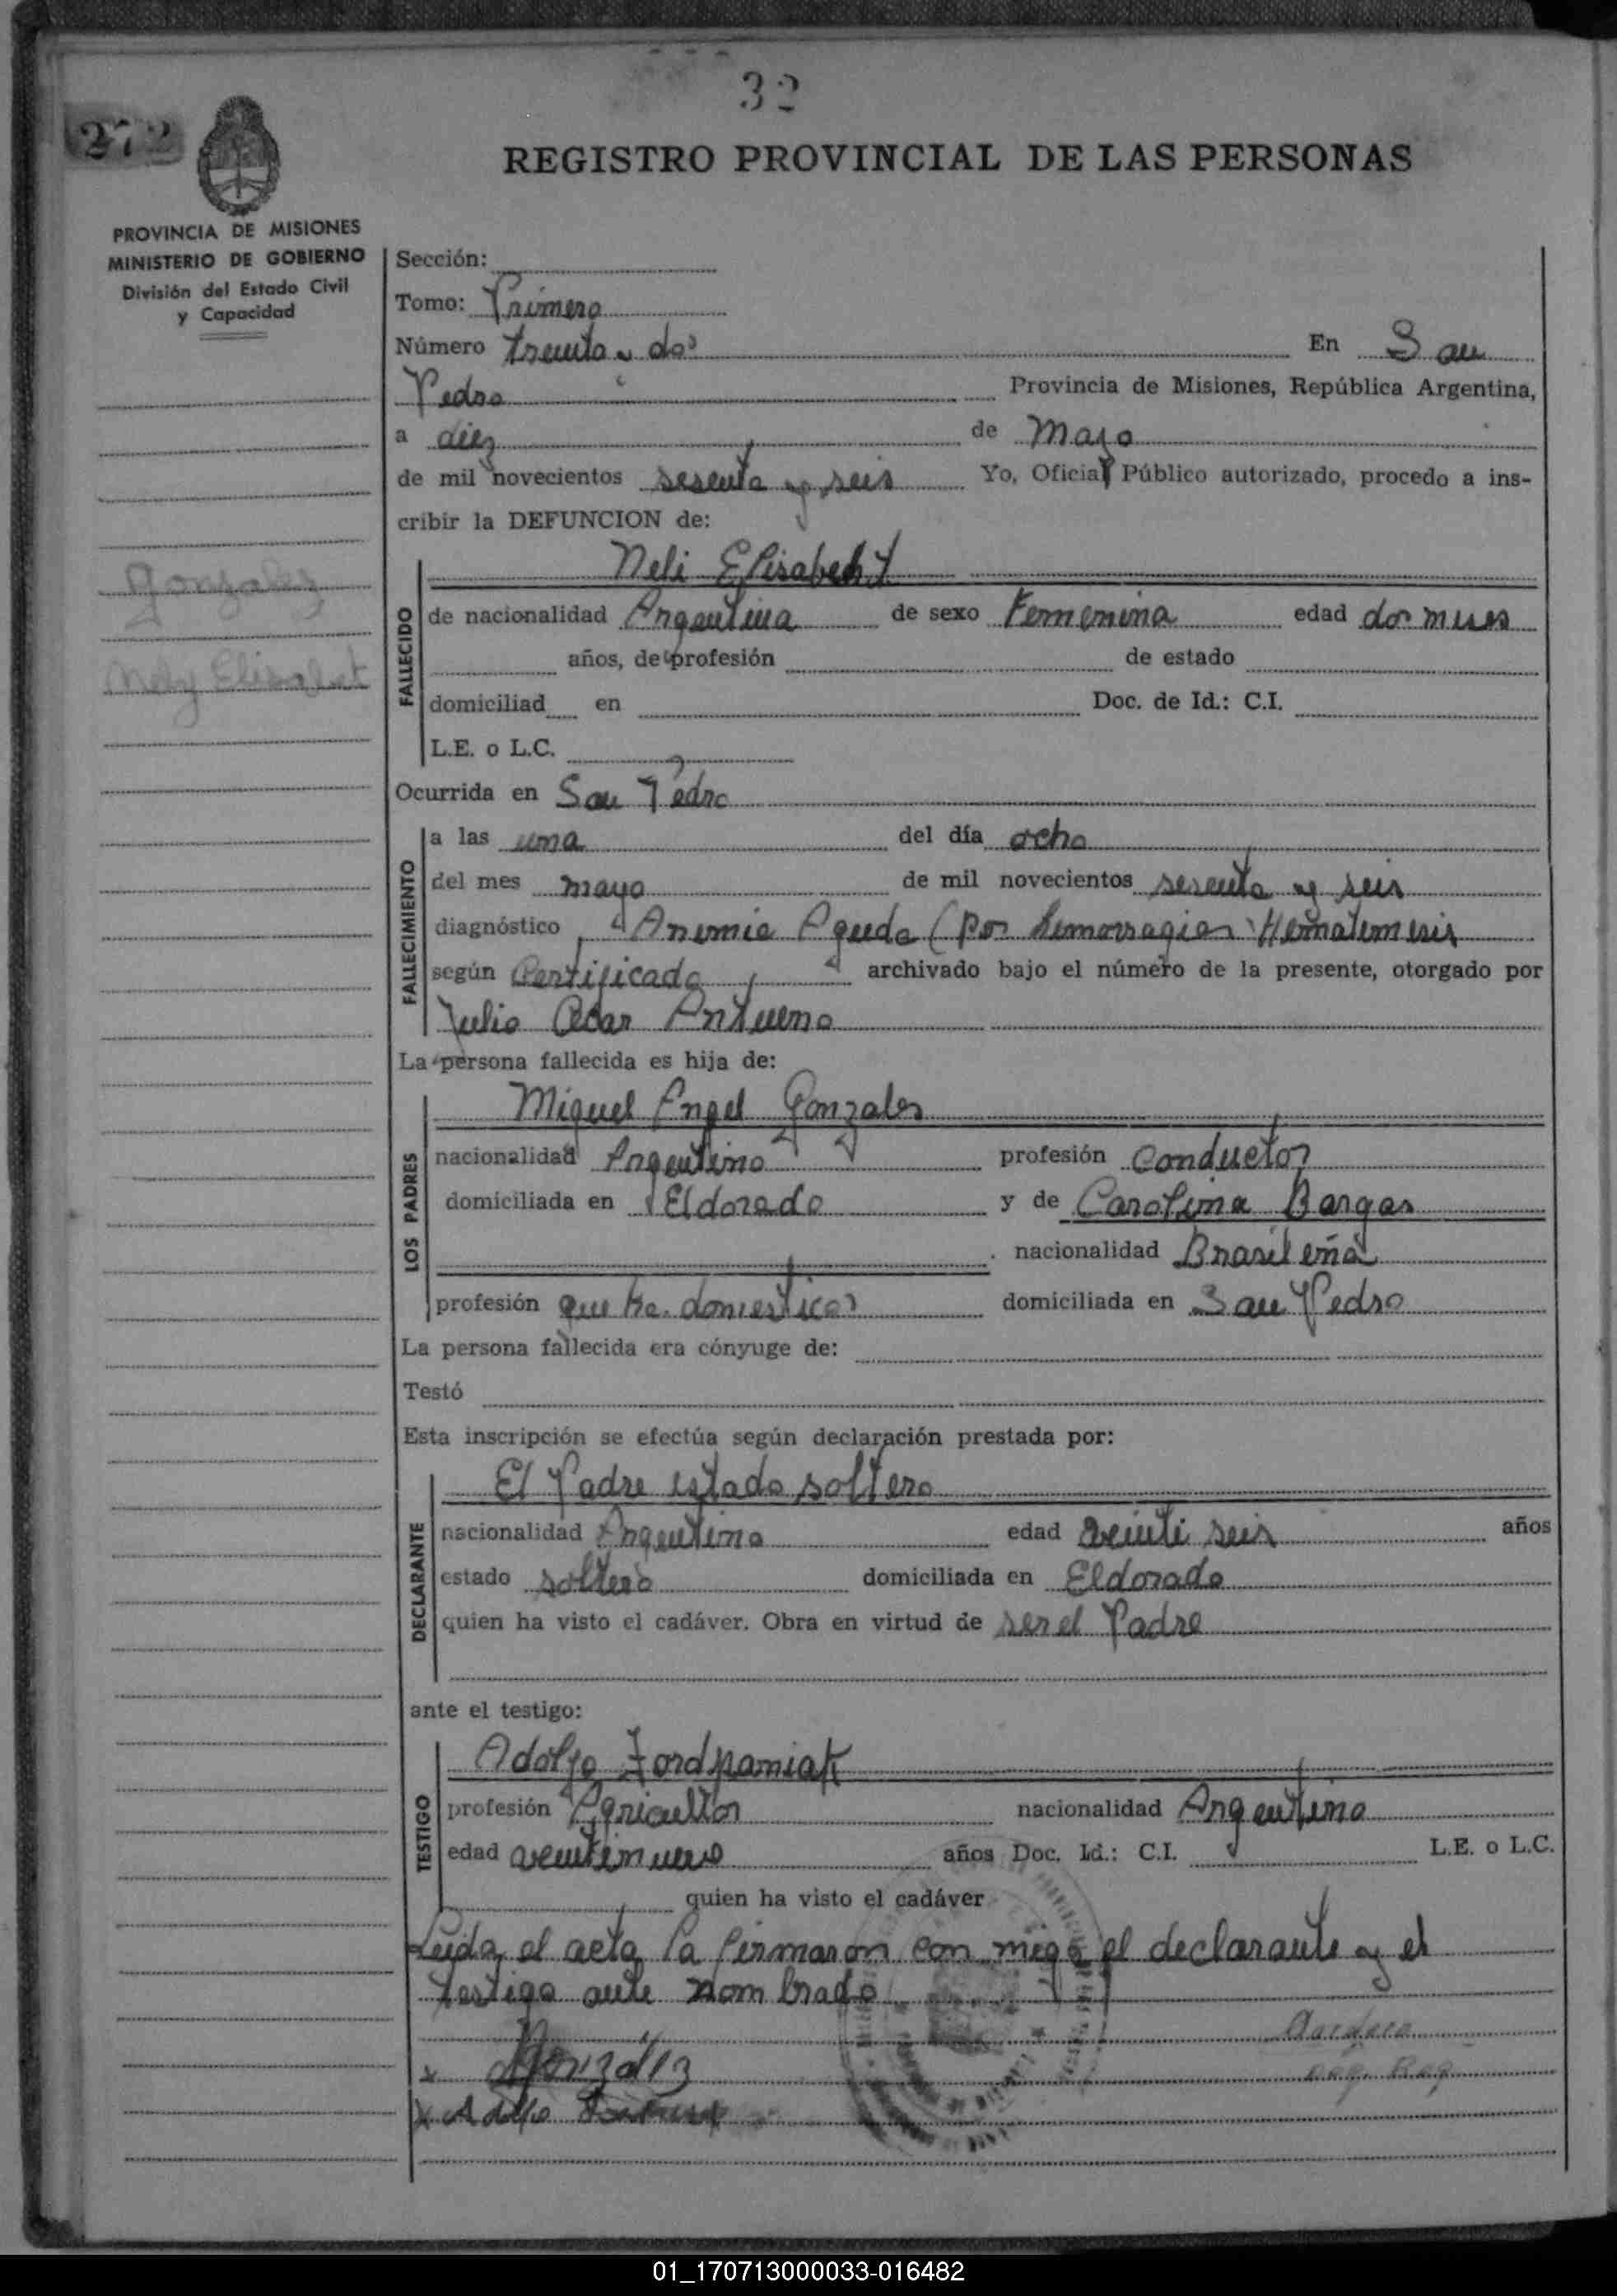 32
272
REGISTRO PROVINCIAL DE LAS PERSONAS
PROVINCIA DE MISIONES
MINISTERIO DE GOBIERNO
División del Estado Civil
y Capacidad
Gonzalez
Nely Elisabet
Sección:
Tomo: Primero
Número treinta y dos En San
Pedro Provincia de Misiones, República Argentina,
a diez de Mayo
de mil novecientos sesenta y seis Yo, Oficial Público autorizado, procedo a ins-
cribir la DEFUNCION de:
Neli Elisabeht
FALLECIDO
de nacionalidad Argentina de sexo Femenina edad dos meses
años, de profesión de estado
domiciliad en Doc. de Id.: C.I.
L.E. o L.C.
Ocurrida en San Pedro
FALLECIMIENTO
a las una del día ocho
del mes mayo de mil novecientos sesenta y seis
diagnóstico Anemia Aguda (por hemorragias Hematemesis
según Certificado archivado bajo el número de la presente, otorgado por
Julio Cesar
La persona fallecida es hija de:
LOS PADRES
Miguel Angel Gonzales
nacionalidad Argentino profesión Conductor
domiciliada en Eldorado y de Carolina Bargas
nacionalidad Brasileña
profesión que hc. domesticos domiciliada en San Pedro
La persona fallecida era cónyuge de:
Testó
Esta inscripción se efectúa según declaración prestada por:
DECLARANTE
El Padre estado soltero
nacionalidad Argentino edad veinti seis años
estado soltero domiciliada en Eldorado
quien ha visto el cadáver. Obra en virtud de ser el Padre
ante el testigo:
TESTIGO
Adolfo
profesión Agricultor nacionalidad Argentino
edad veintinueve años Doc. Id.: C.I. L.E. o L.C.
quien ha visto el cadáver
Leida el acta la firmaron con migo el declarante y el
testigo ante nombrado
x Gonzalez
x Adolfo
01_170713000033-016482